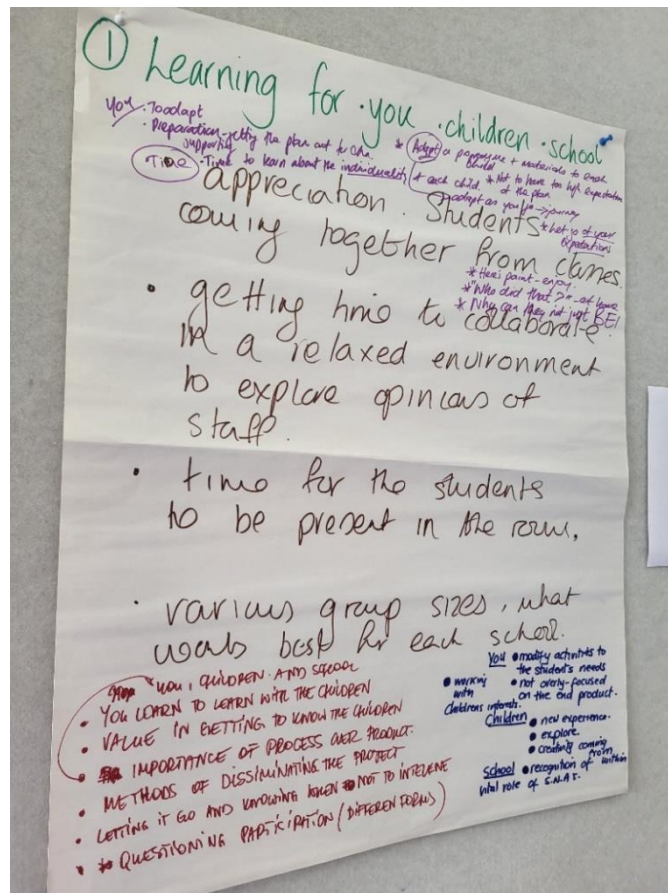 ① Learning for · you · children · school
You · To adapt
· Preparation - getting the plan out to
supporting
Time · Time to learn about the individuality of each child.
* Adapt a programme + materials to each
child
* Not to have too high expectation
of the plan
adapt as you go → journey
* Let go of your
expectations
appreciation. Students
coming together from classes.
* Here's paint - enjoy.
* "Who did that?" - at home
* Why can they not just BE!
· getting time to collaborate
in a relaxed environment
to explore opinions of
staff.
· time for the students
to be present in the room,
· various group sizes, what
works best for each school.
YOU, CHILDREN AND SCHOOL
· YOU LEARN TO LEARN WITH THE CHILDREN
· VALUE IN GETTING TO KNOW THE CHILDREN
· IMPORTANCE OF PROCESS OVER PRODUCT.
· METHODS OF DISSIMINATING THE PROJECT
· LETTING IT GO AND KNOWING WHEN NOT TO INTERVENE
· QUESTIONING PARTICIPATION (DIFFEREN FORMS)
You • modify activities to
the student's needs
• not overly-focused
on the end product.
• working
with
childrens interests.
Children • new experience.
• explore.
• creating coming
from within
School • recognition of
vital role of S.N.A's.